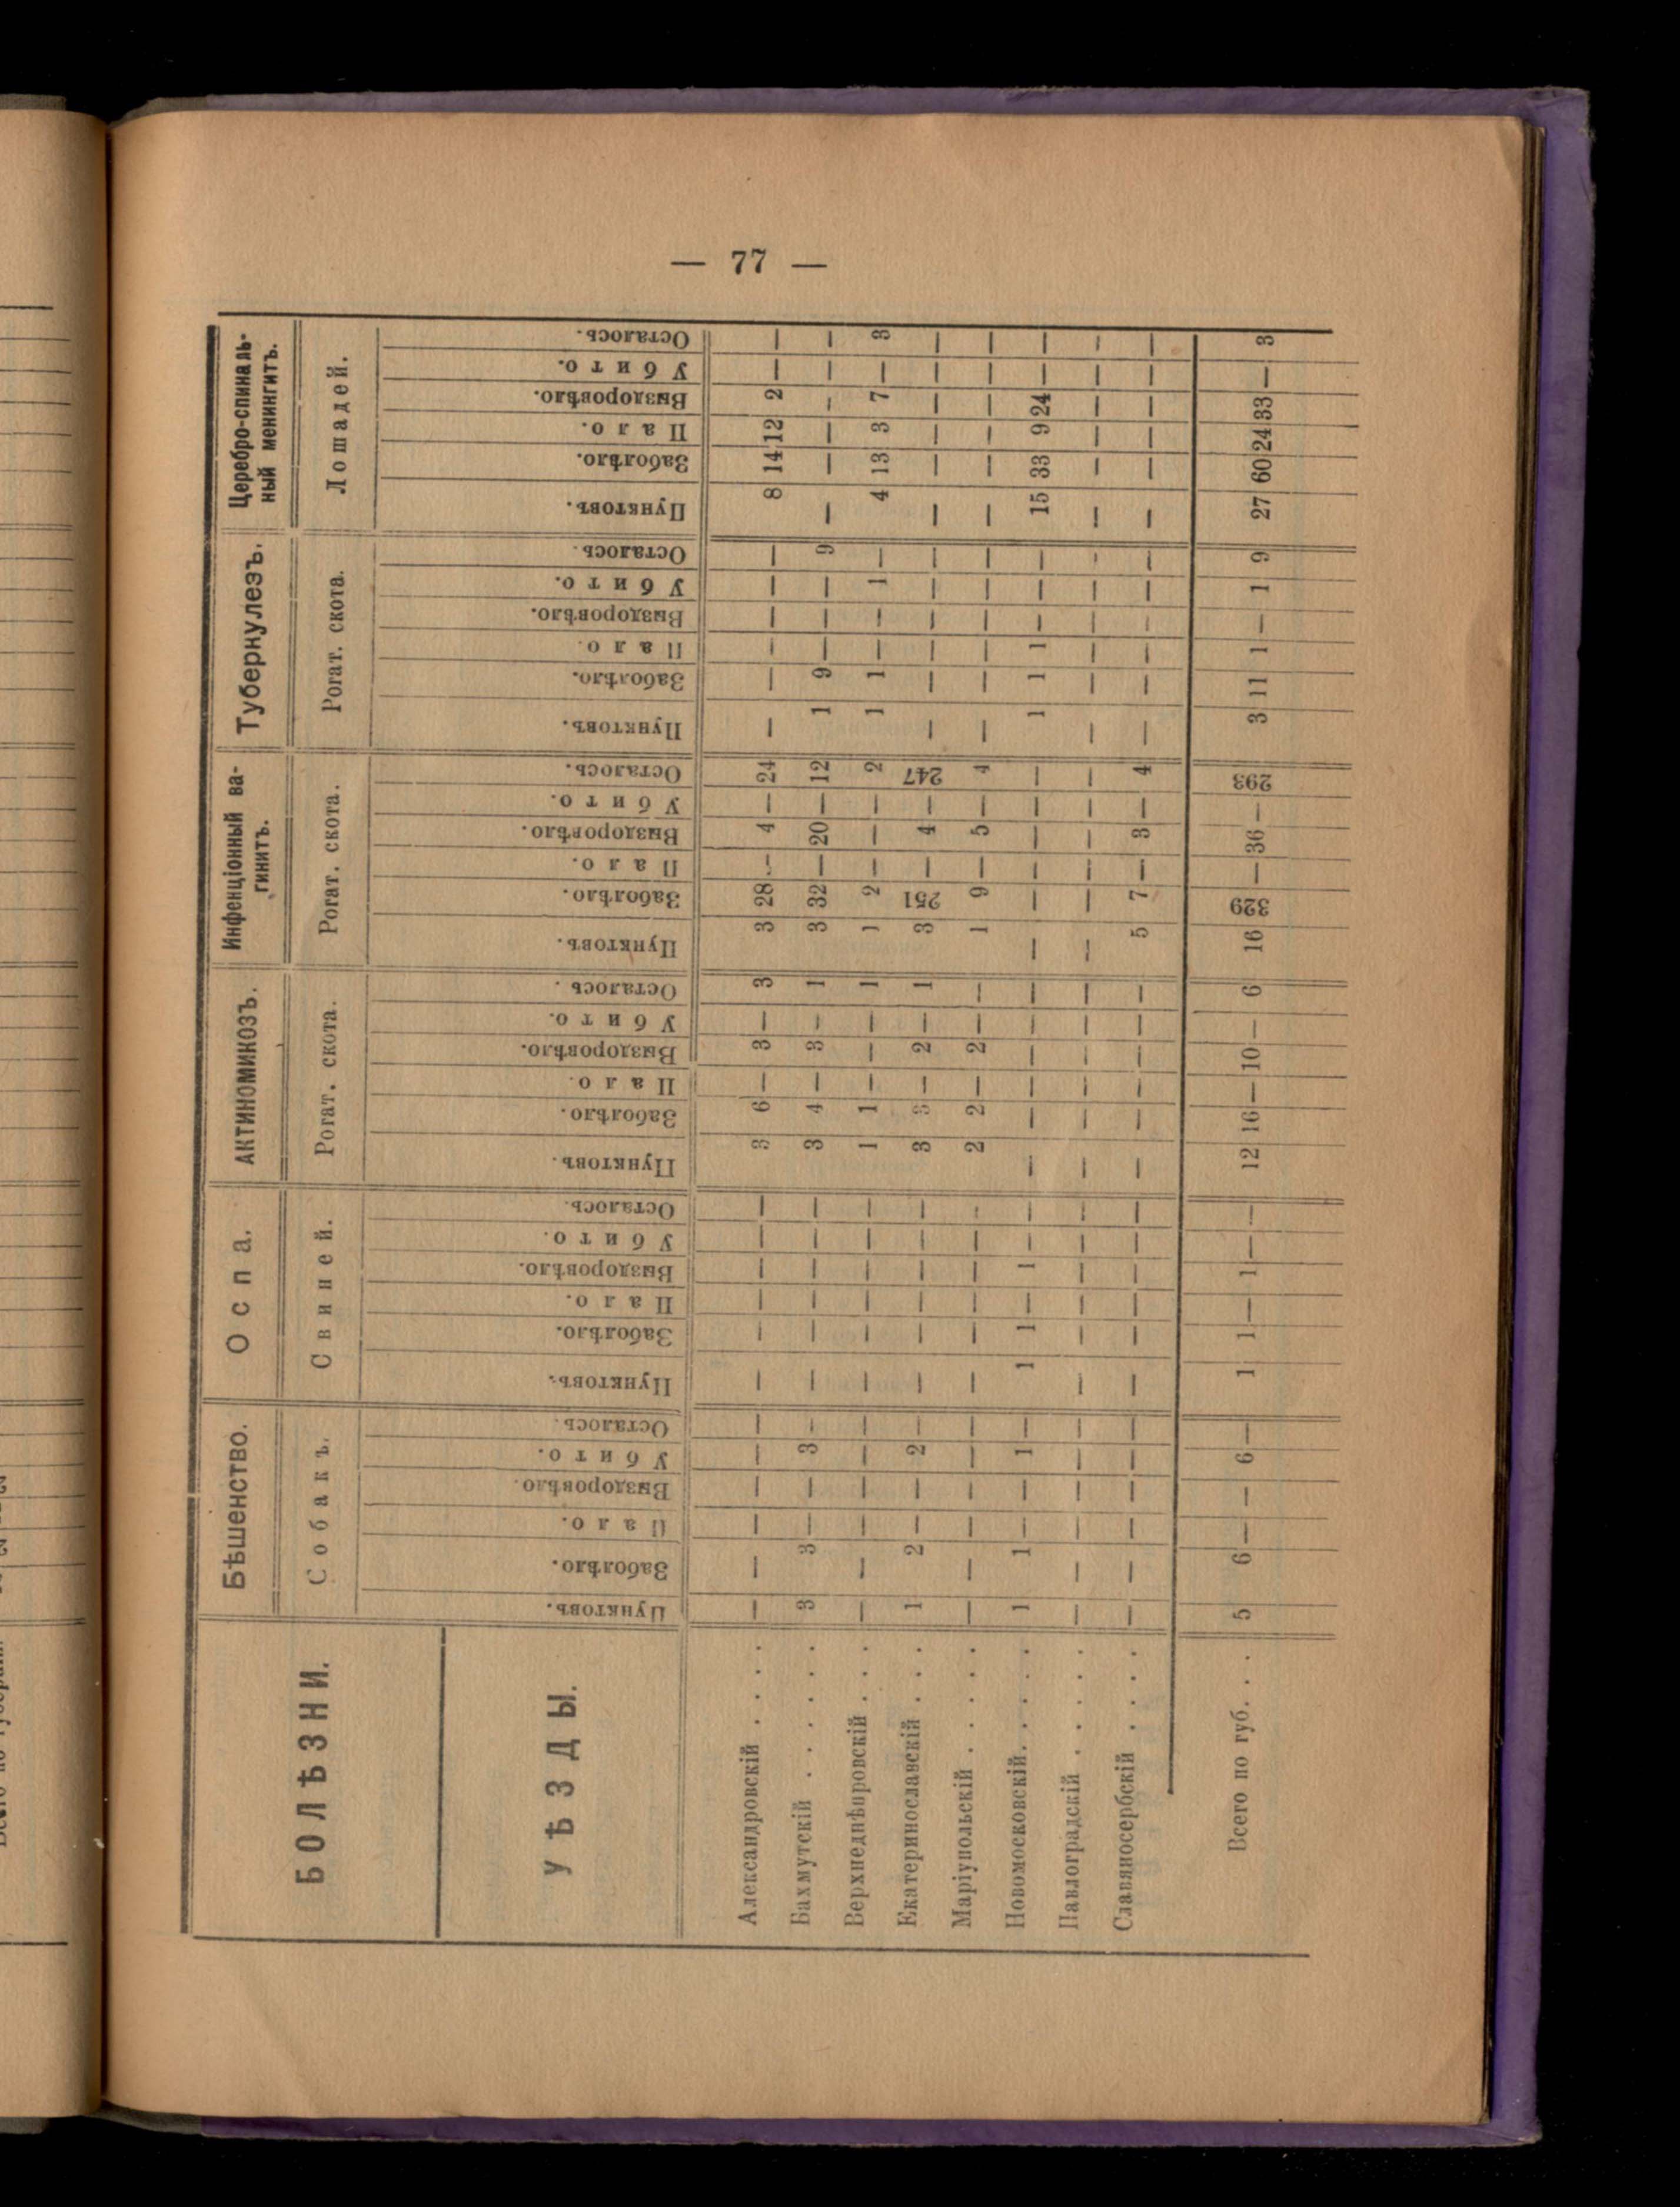 — 77 —
БОЛѢЗНИ. Бѣшенство. Оспа. Актиномикозъ. Инфенціонный ва-гинитъ. Туберкулезъ. Церебро-спиналь-ный менингитъ.
Собакъ. Свиней. Рогат. скота. Рогат. скота. Рогат. скота. Лошадей.
УѢЗДЫ. Пунктовъ. Заболѣло. Пало. Выздоровѣло. Убито. Осталось. Пунктовъ. Заболѣло. Пало. Выздоровѣло. Убито. Осталось. Пунктовъ. Заболѣло. Пало. Выздоровѣло. Убито. Осталось. Пунктовъ. Заболѣло. Пало. Выздоровѣло. Убито. Осталось. Пунктовъ. Заболѣло. Пало. Выздоровѣло. Убито. Осталось. Пунктовъ. Заболѣло. Пало. Выздоровѣло. Убито. Осталось.
Александровскій . . . . — — — — — — — — — — — — 3 6 — 3 — 3 3 28 — 4 — 24 — — — — — — 8 14 12 2 — —
Бахмутскій . . . . . . 3 3 — — 3 — — — — — — — 3 4 — 3 — 1 3 32 — 20 — 12 1 9 — — — 9 — — — — — —
Верхнеднѣпровскій . . . — — — — — — — — — — — — 1 1 — — — 1 1 2 — — — 2 1 1 — — 1 — 4 13 3 7 — 3
Екатеринославскій . . . 1 2 — — 2 — — — — — — — 3 3 — 2 — 1 3 251 — 4 — 247 — — — — — — — — — — — —
Маріупольскій . . . . . — — — — — — — — — — — — 2 2 — 2 — — 1 9 — 5 — 4 — — — — — — — — — — — —
Новомосковскій . . . . . 1 1 — — 1 — 1 1 — 1 — — — — — — — — — — — — — — 1 1 1 — — — 15 33 9 24 — —
Павлоградскій . . . . . — — — — — — — — — — — — — — — — — — — — — — — — — — — — — — — — — — — —
Славяносербскій . . . . — — — — — — — — — — — — — — — — — — 5 7 — 3 — 4 — — — — — — — — — — — —
Всего по губ. . . 5 6 — — 6 — 1 1 — 1 — — 12 16 — 10 — 6 16 329 — 36 — 293 3 11 1 — 1 9 27 60 24 33 — 3